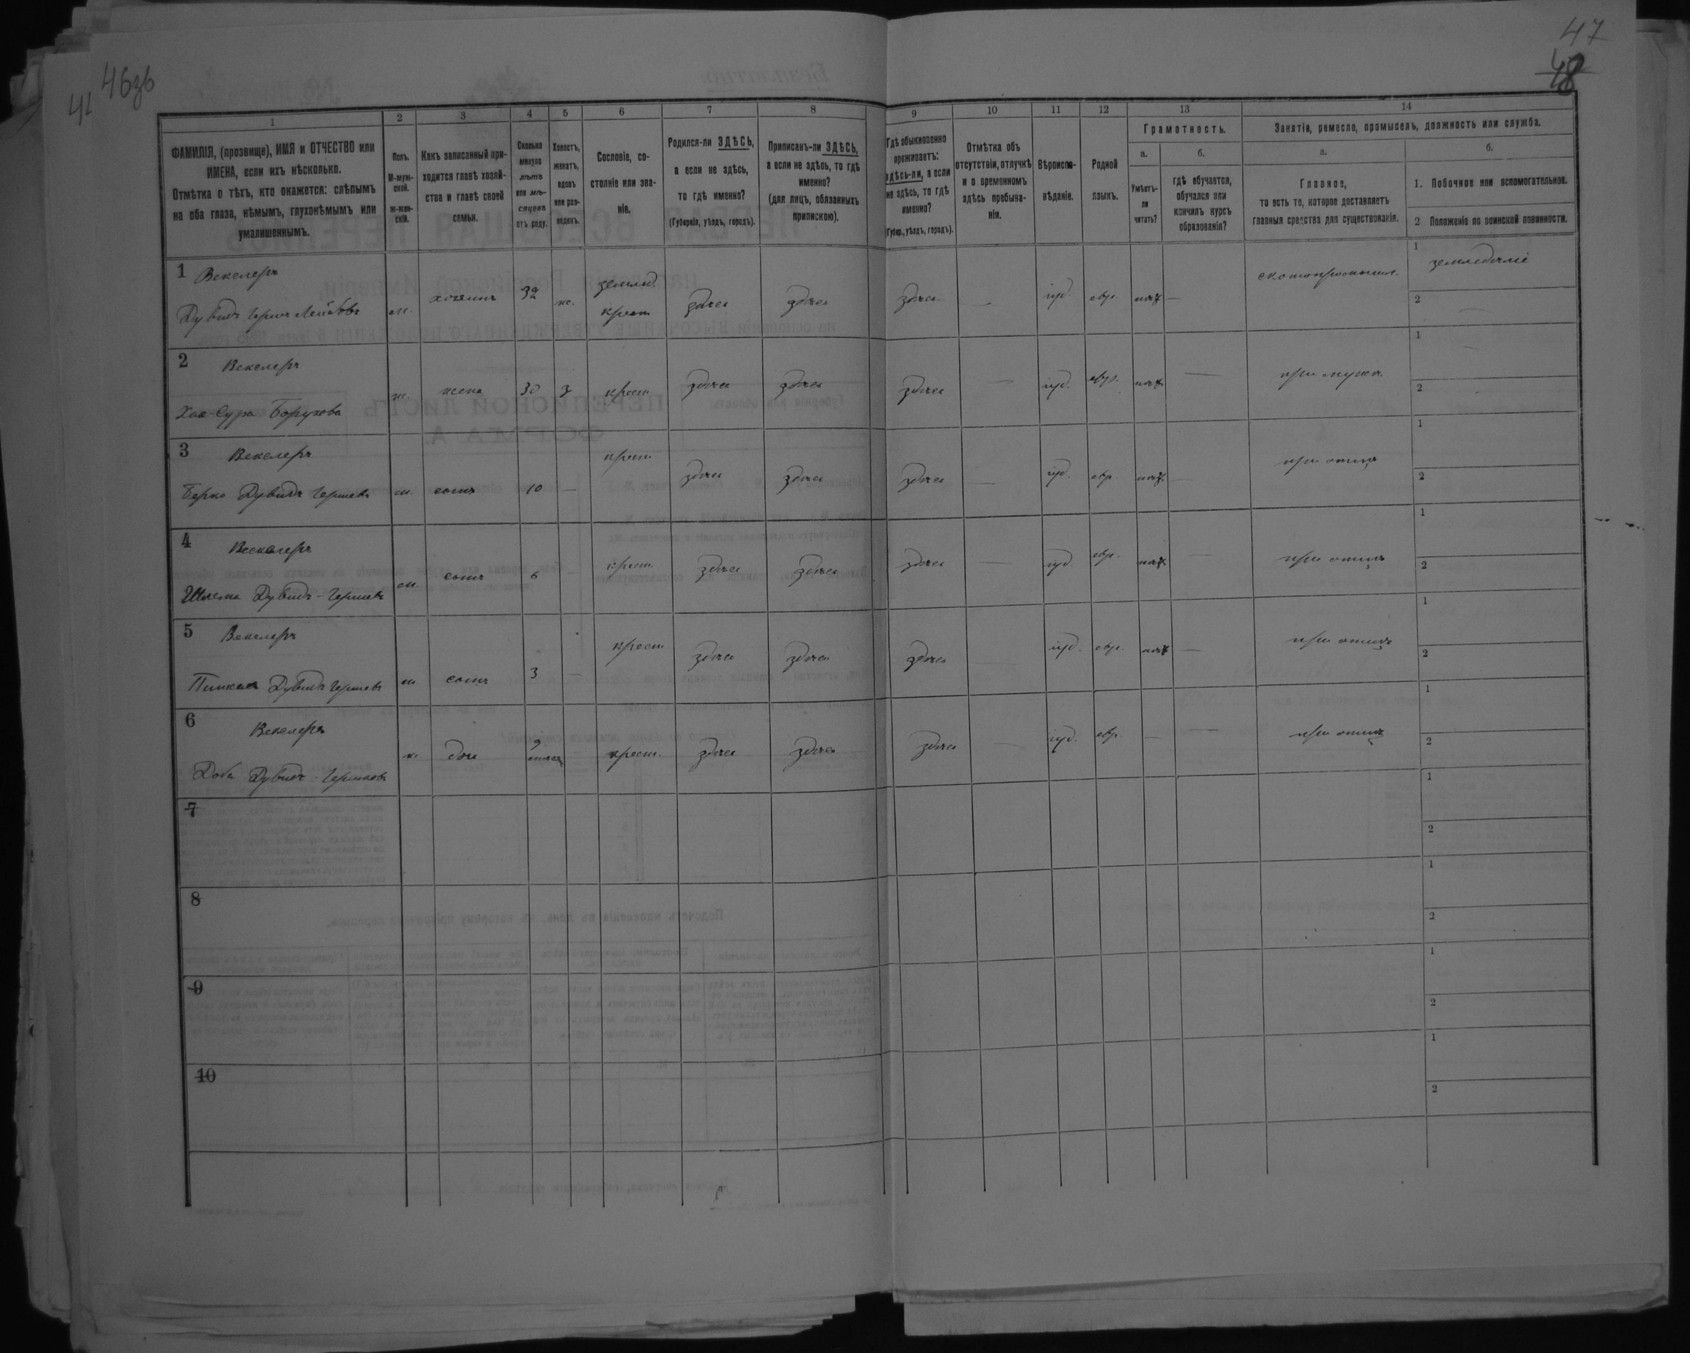 46об
41
47
48
1 2 3 4 5 6 7 8 9 10 11 12 13 14
ФАМИЛІЯ, (прозвище), ИМЯ и ОТЧЕСТВО или
ИМЕНА, если ихъ нѣсколько.
Отмѣтка о тѣхъ, кто окажется: слѣпымъ
на оба глаза, нѣмымъ, глухонѣмымъ или
умалишеннымъ.
Полъ.
М-муж-
ской.
Ж-жен-
скій.
Какъ записанный при-
ходится главѣ хозяй-
ства и главѣ своей
семьи.
Сколько
минуло
лѣтъ
или мѣ-
сяцевъ
отъ роду.
Холостъ,
женатъ,
вдовъ
или раз-
веденъ.
Сословіе, со-
стояніе или зва-
ніе.
Родился-ли ЗДѢСЬ,
а если не здѣсь,
то гдѣ именно?
(Губернія, уѣздъ, городъ).
Приписанъ-ли ЗДѢСЬ,
а если не здѣсь, то гдѣ
именно?
(для лицъ, обязанныхъ
припискою).
Гдѣ обыкновенно
проживаетъ:
здѣсь-ли, а если
не здѣсь, то гдѣ
именно?
(Губер., уѣздъ, городъ).
Отмѣтка объ
отсутствіи, отлучкѣ
и о временномъ
здѣсь пребыва-
ніи.
Вѣроиспо-
вѣданіе.
Родной
языкъ.
Грамотность.
а.
Умѣетъ-
ли
читать?
б.
гдѣ обучается,
обучался или
кончилъ курсъ
образованія?
Занятія, ремесло, промыселъ, должность или служба.
а.
Главное,
то есть то, которое доставляетъ
главныя средства для существованія.
б.
1. Побочное или вспомогательное.
2 Положеніе по воинской повинности.
1 Векслеръ
Дувидъ Гершъ Лейбовъ м. хозяинъ 32 ж. землед. крест здѣсь здѣсь здѣсь — іуд. евр. нѣт — 1 земледѣліе
2
2 Векслеръ
Хая-Сура Борухова ж. жена 30 з крест здѣсь здѣсь здѣсь — іуд. евр. нѣт — при мужѣ 1
2
3 Векслеръ
Берко Дувидъ Гершевъ м. сынъ 10 — крест здѣсь здѣсь здѣсь — іуд. евр нѣт — при отцѣ 1
2
4 Векслеръ
Шлема Дувидъ-Гершевъ м. сынъ 6 — крест здѣсь здѣсь здѣсь іуд. евр. нѣт — при отцѣ 1
2
5 Векслеръ
Дувидъ Гершевъ м сынъ 3 — крест здѣсь здѣсь здѣсь — іуд. евр. нѣт — при отцѣ 1
2
6 Векслеръ
Доба Дувидъ-Гершковъ ж. дочь 9 крест. здѣсь здѣсь здѣсь — іуд. евр. — — при отцѣ 1
2
7 1
2
8 1
2
9 1
2
10 1
2